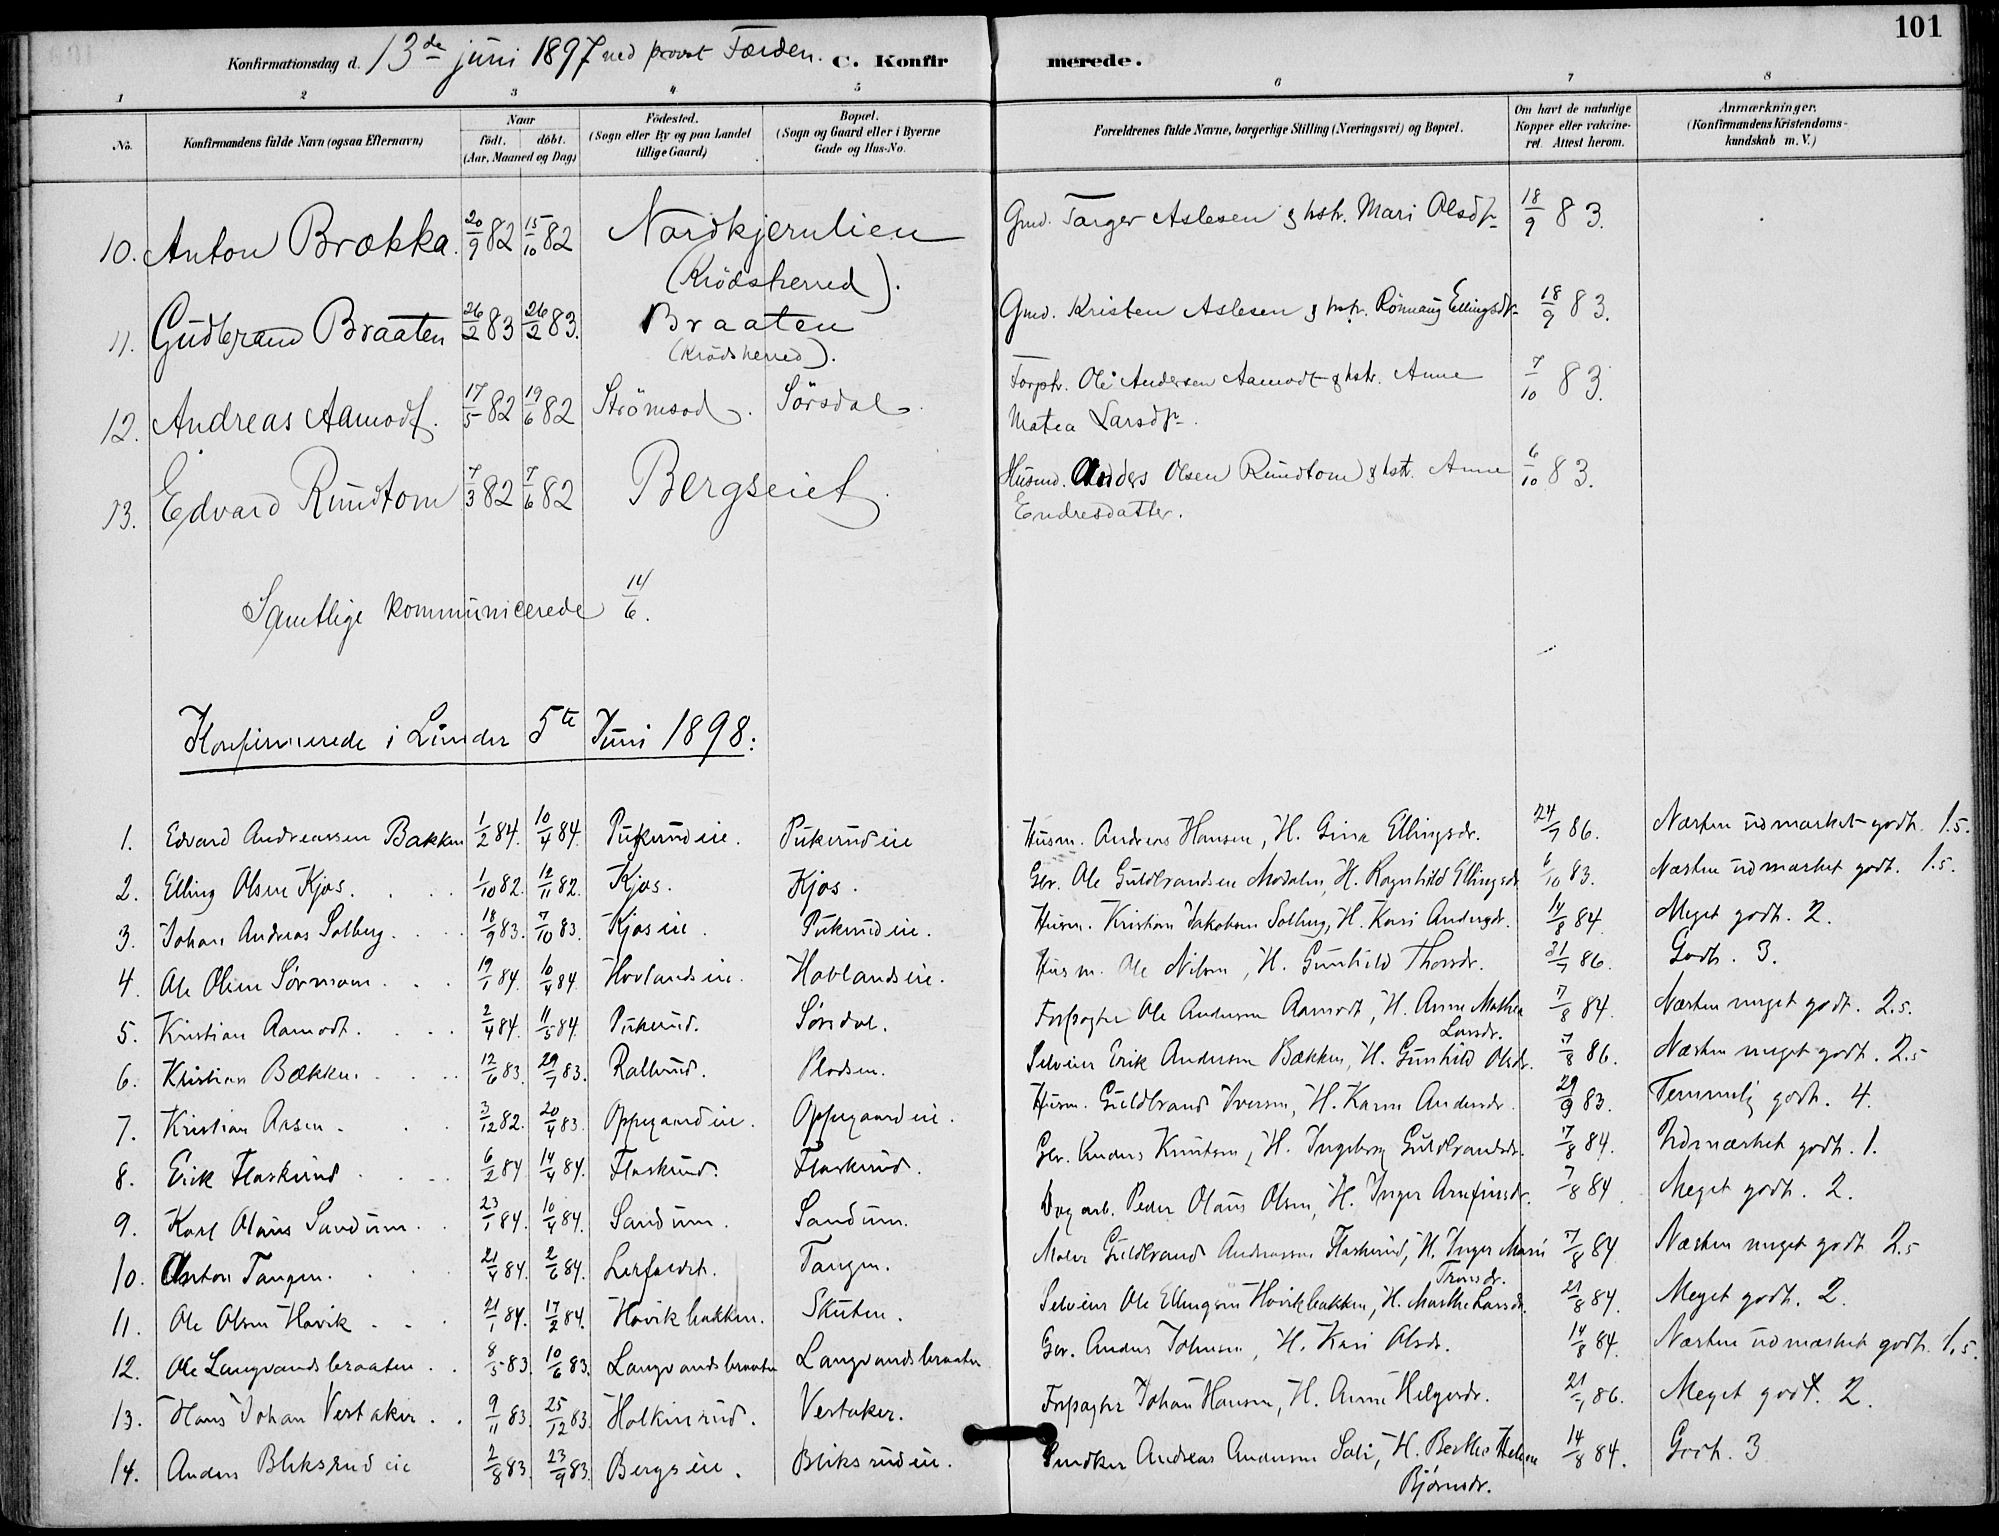 101
Konfirmationsdag d. 13de juni 1897 ved provst Færden. C. Konfirmerede.
1 2 3 4 5 6 7 8
No. Konfirmandens fulde Navn (ogsaa Efternavn) Naar født. døbt. (Aar, Maaned og Dag) Fødested. (Sogn eller By og paa Landet tillige Gaard) Bopæl. (Sogn og Gaard eller i Byerne Gade og Hus-No. Forældrenes fulde Navne, borgerlige Stilling (Næringsvei) og Bopæl. Om havt de naturlige Kopper eller vakcineret. Attest herom. Anmærkninger. (Konfirmandens Kristendomskundskab m. V.)
10. Anton Brækka. 20/9 82 15/10 82 Nordkjernlien (Krödsherred). Gmd. Targer Aslesen & hstr. Mari Olsdr. 18/9 83.
11. Gudbrand Braaten 26/2 83 26/2 83. Braaten (Krödsherred). Gmd. Kristen Aslesen & hstr. Rönnaug Ellingsdr. 18/9 83.
12. Andreas Aamodt. 17/5 82 19/6 82 Strömsod. Sörsdal. Forptr. Ole Andersen Aamodt & hstr. Anne Matea Larsdr. 7/10 83.
13. Edvard Rundtom 7/3 82 7/6 82 Bergseiet. Husmd. Anders Olsen Rundtom & hstr. Anne Endresdatter. 6/10 83.
Samtlige kommunicerede 14/6.
Konfirmerede i Lunder 5te Juni 1898:
1. Edvard Andreassen Bakken 1/2 84. 10/4 84. Pukerudeie. Pukerudeie Husm. Andreas Hansen, H. Gina Ellingsdr. 24/7 86. Næsten udmærket godt. 1.5.
2. Elling Olsen Kjos. 1/10 82. 12/11 82. Kjos. Kjos. Gbr. Ole Guldbrandsen Modalen, H. Ragnhild Ellingsdr. 6/10 83. Næsten udmærket godt. 1.5.
3. Johan Andreas Solberg. 18/9 83. 7/10 83. Kjoseie. Pukerudeie. Husm. Kristian Jakobsen Solberg, H. Kari Andersdr. 14/8 84. Meget godt. 2.
4. Ole Olsen Sørmoen. 19/1 84. 10/4 84. Hovlandseie. Hovlandseie. Husm. Ole Nilsen, H. Gunhild Thorsdr. 21/7 86. Godt. 3.
5. Kristian Aamodt. 2/4 84. 11/5 84. Pukerud. Sørsdal. Forpagter Ole Andersen Aamodt, H. Anne Mathea Larsdr. 7/8 84. Næsten meget godt. 2.5.
6. Kristian Bækken. 12/6 83. 29/7 83. Rallerud. Plodsen. Selveier Erik Andersen Bækken, H. Gunhild Olsdr. 7/8 86. Næsten meget godt. 2.5
7. Kristian Arsen. 3/12 82. 20/4 83. Oppegaardeie. Oppegaardeie. Husm. Guldbrand Iversen, H. Karen Andersdr. 29/9 83. Temmelig godt. 4.
8. Erik Flaskerud 6/2 84 14/4 84. Flaskerud. Flaskerud. Gbr. Anders Knutsen, H. Ingeborg Guldbrandsdr. 7/8 84. Udmærket godt. 1.
9. Karl Olaus Sandum. 23/1 84. 10/4 84. Sandum. Sandum. Dagarb. Peder Olaus Olsen, H. Inger Arnfinsdr. 7/8 84 Meget godt. 2.
10. Anton Tangen. 21/4 84. 2/6 84. Lerfaldet. Tangen. Maler Guldbrand Andreassen Flaskerud, H. Inger Marie Tronsdr. 7/8 84 Næsten meget godt 2.5
11. Ole Olsen Hovik 21/1 84. 17/2 84. Hovikbakken. Skuten. Selveier Ole Ellingsen Hovikbakken, H. Marthe Larsdr. 21/8 84. Meget godt. 2.
12. Ole Langvandsbraaten 8/5 83. 10/6 83. Langvandsbraaten Langvandsbraaten Gbr. Anders Johnsen, H. Kari Olsdr. 14/8 84. Næsten udmærket godt. 1.5.
13. Hans Johan Vestaker. 9/11 83. 25/12 83. Holkinsrud. Vestaker. Forpagter Johan Hansen, H. Anne Helgesdr. 21/7 86. Meget godt. 2.
14. Anders Bliksrudeie 2/8 83. 23/9 83. Bergseie. Bliksrudeie. Snedker Andreas Andersen Soli, H. Berthe Helene Bjørnsdr. 14/8 84. Godt. 3